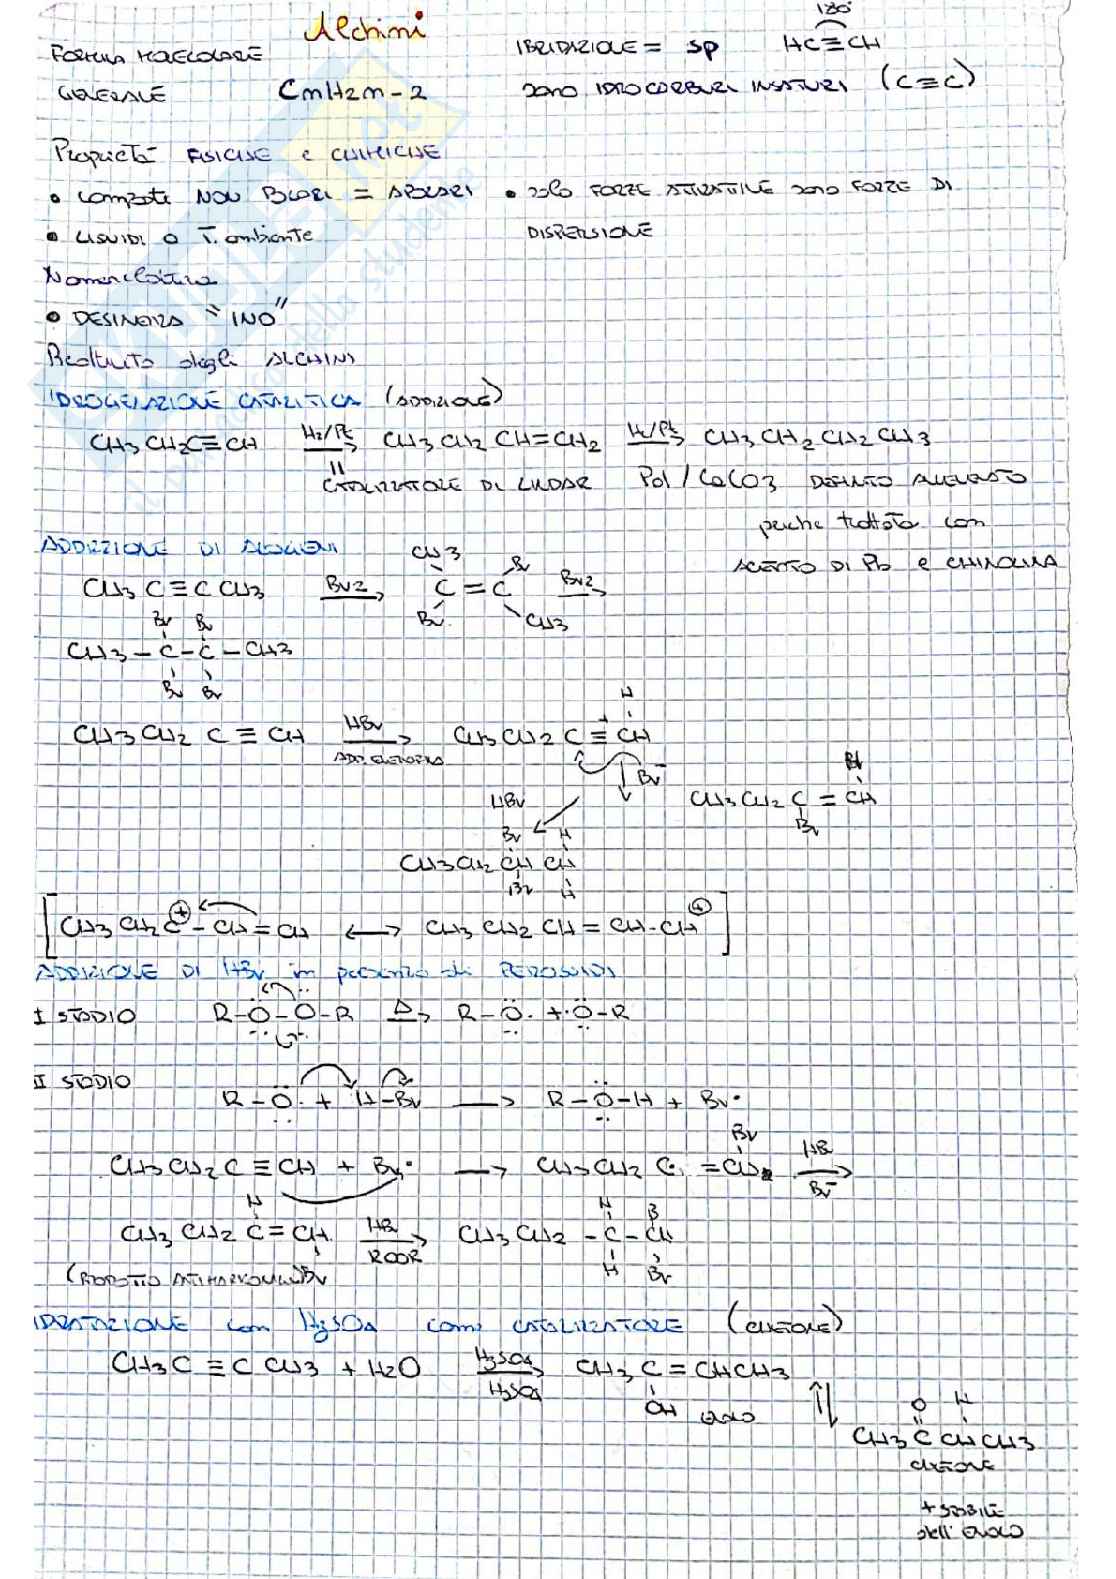 Alchini
FORMULA MOLECOLARE
GENERALE CmH2m-2
IBRIDAZIONE = sp
180°
HC≡CH
SONO IDROCARBURI INSATURI (C≡C)
Proprietà FISICHE e CHIMICHE
• Composti NON POLARI = APOLARI
• solo FORZE ATTRATTIVE sono FORZE DI
DISPERSIONE
• LIQUIDI a T. ambiente
Nomenclatura
• DESINENZA "INO"
Reattività degli ALCHINI
IDROGENAZIONE CATALITICA (ADDIZIONE)
CH3CH2C≡CH H2/Pt CH3CH2CH=CH2 H2/Pt CH3CH2CH2CH3
CATALIZZATORE DI LINDAR Pd/CaCO3 DEFINITO
perche trattato con
ACETATO DI Pb e CHINOLINA
ADDIZIONE DI ALOGENI
CH3C≡CCH3 Br2 CH3 Br C=C Br CH3 Br2
Br Br
CH3-C-C-CH3
Br Br
CH3CH2C≡CH HBr CH3CH2C≡CH H
ADD. ELETTROFILA
Br-
CH3CH2C=CH
Br
HBr
Br H
CH3CH2CH CH
Br H
[CH3CH2C⊕-CH=CH ⟷ CH3CH2CH=CH-CH⊕]
ADDIZIONE DI HBr in presenza di PEROSSIDI
I STADIO R-O-O-R Δ R-O· + ·O-R
II STADIO
R-O· + H-Br → R-O-H + Br·
CH3CH2C≡CH + Br· → CH3CH2C·=CH Br HBr Br-
H
CH3CH2C=CH HBr ROOR CH3CH2-C-CH
Br
H B
H Br
(PRODOTTO ANTIMARKOVNIKOV)
IDRATAZIONE con H2SO4 come CATALIZZATORE (CHETONE)
CH3C≡CCH3 + H2O H2SO4 H2SO4 CH3C=CHCH3
OH enolo
O H
CH3CCHCH3
CHETONE
+ STABILE
dell'enolo